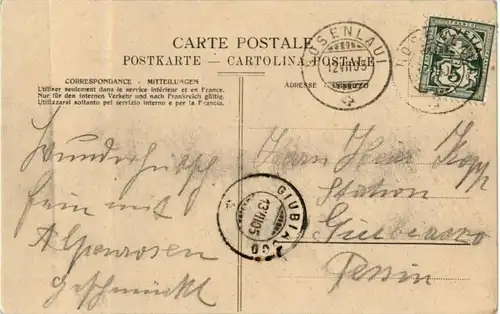 CARTE POSTALE
POSTKARTE — CARTOLINA POSTALE
CORRESPONDANCE - MITTEILUNGEN
Utiliser seulement dans le service intérieur et en France.
Nur für den internen Verkehr und nach Frankreich gültig.
Utilizzarsi soltanto pel servizio interno e per la Francia.
ADRESSE
ROSENLAUI
12.VII.05
FRANCO
HELVETIA
5
Wunderhübsch
fein mit
Alpenrosen
geschmückt
Herrn Hans Kopp
Station
Giubiasco
Tessin
GIUBIASCO
13.VII.05